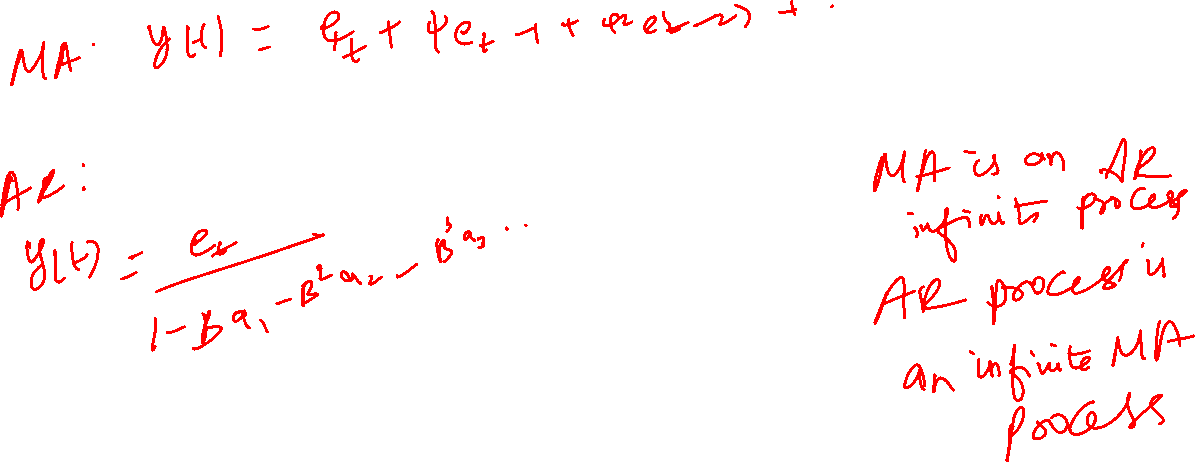 MA: y(t) = e_t + ψe_t-1 + φ2 e_t-2 + ..
AR:
y(t) = e_t / 1 - Ba_1 - B^2 a_2 - B^3 a_3 ..
MA is an AR
infinite process
AR process is
an infinite MA
process